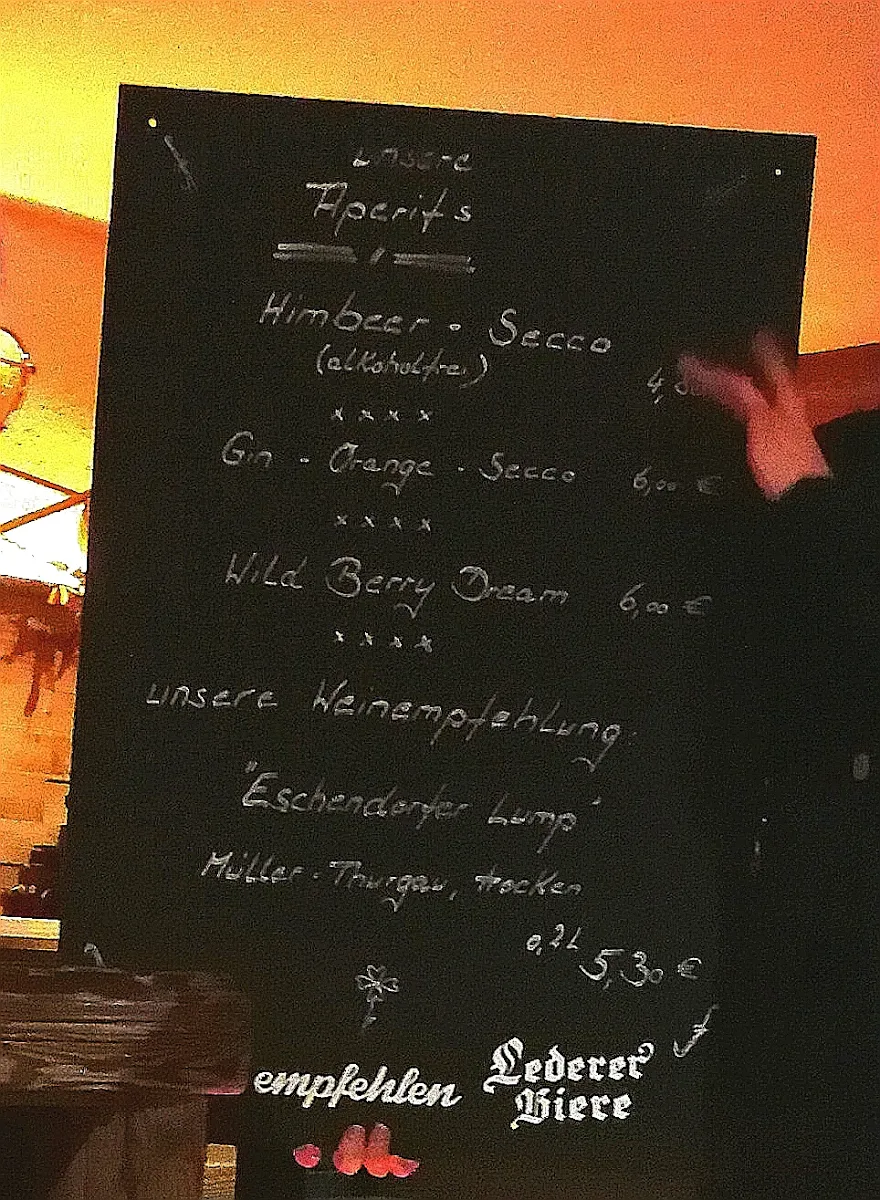 unsere
Aperitfs
Himbeer - Secco
(alkoholfrei)
4,
x x x x
Gin - Orange - Secco 6,00 €
x x x x
Wild Berry Dream 6,00 €
x x x x
unsere Weinempfehlung:
"Eschendorfer Lump"
Müller-Thurgau, trocken
0,2 L 5,30 €
empfehlen Lederer
Biere